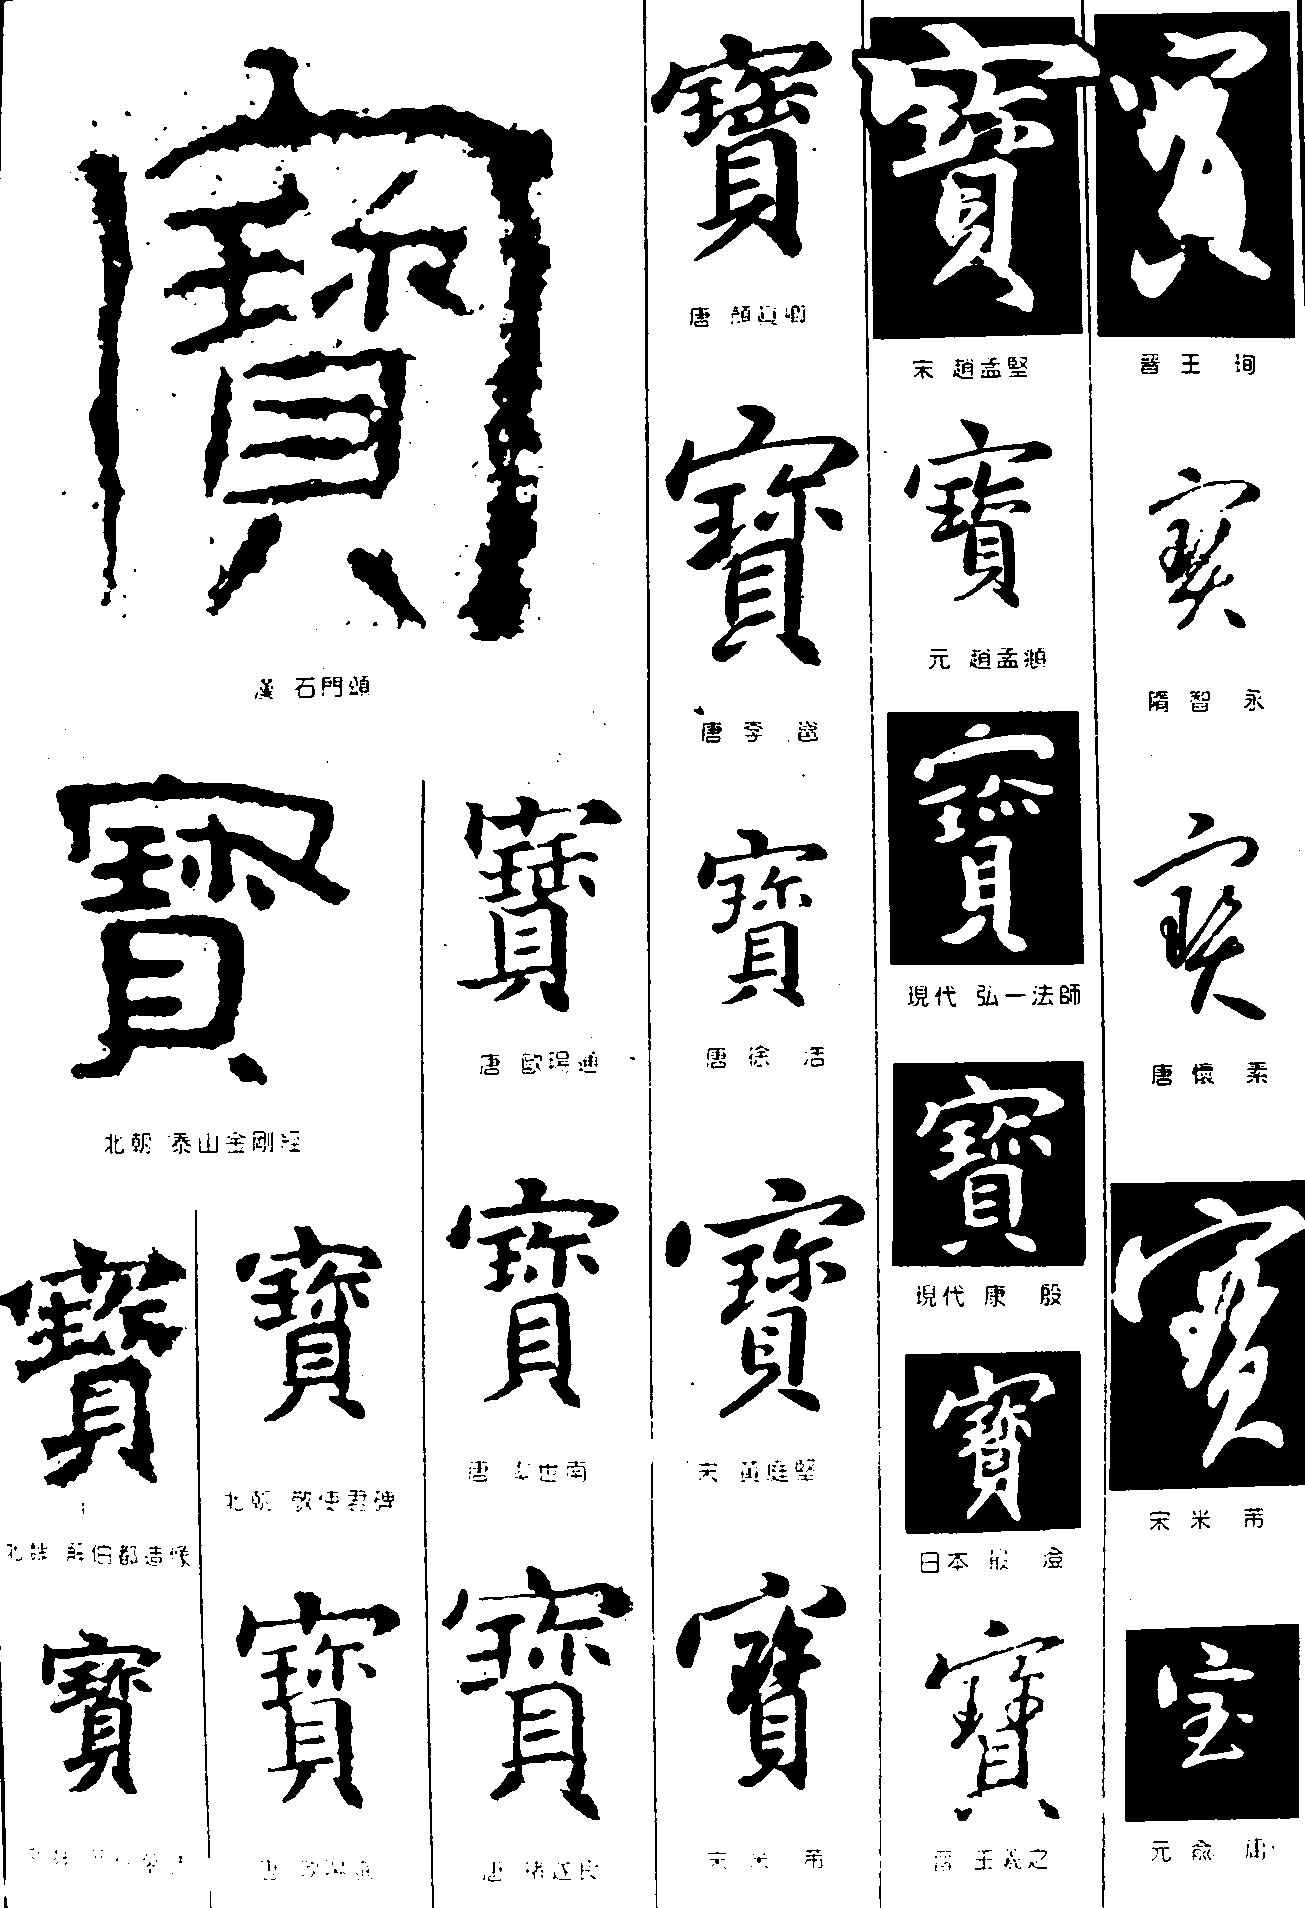 寶
漢 石門頌
寶
北朝 泰山金剛經
寶
造像
寶
北朝 敬使君碑
寶
寶
唐
寶
唐 歐陽通
寶
唐 虞世南
寶
唐 褚遂良
寶
唐 顏真卿
寶
唐 李邕
寶
唐 徐浩
寶
宋 黃庭堅
寶
宋 米芾
寶
宋 趙孟堅
寶
元 趙孟頫
寶
現代 弘一法師
寶
現代 康殷
寶
日本
寶
晉 王羲之
寶
晉 王珣
寶
隋 智永
寶
唐 懷素
寶
宋 米芾
宝
元 俞庸